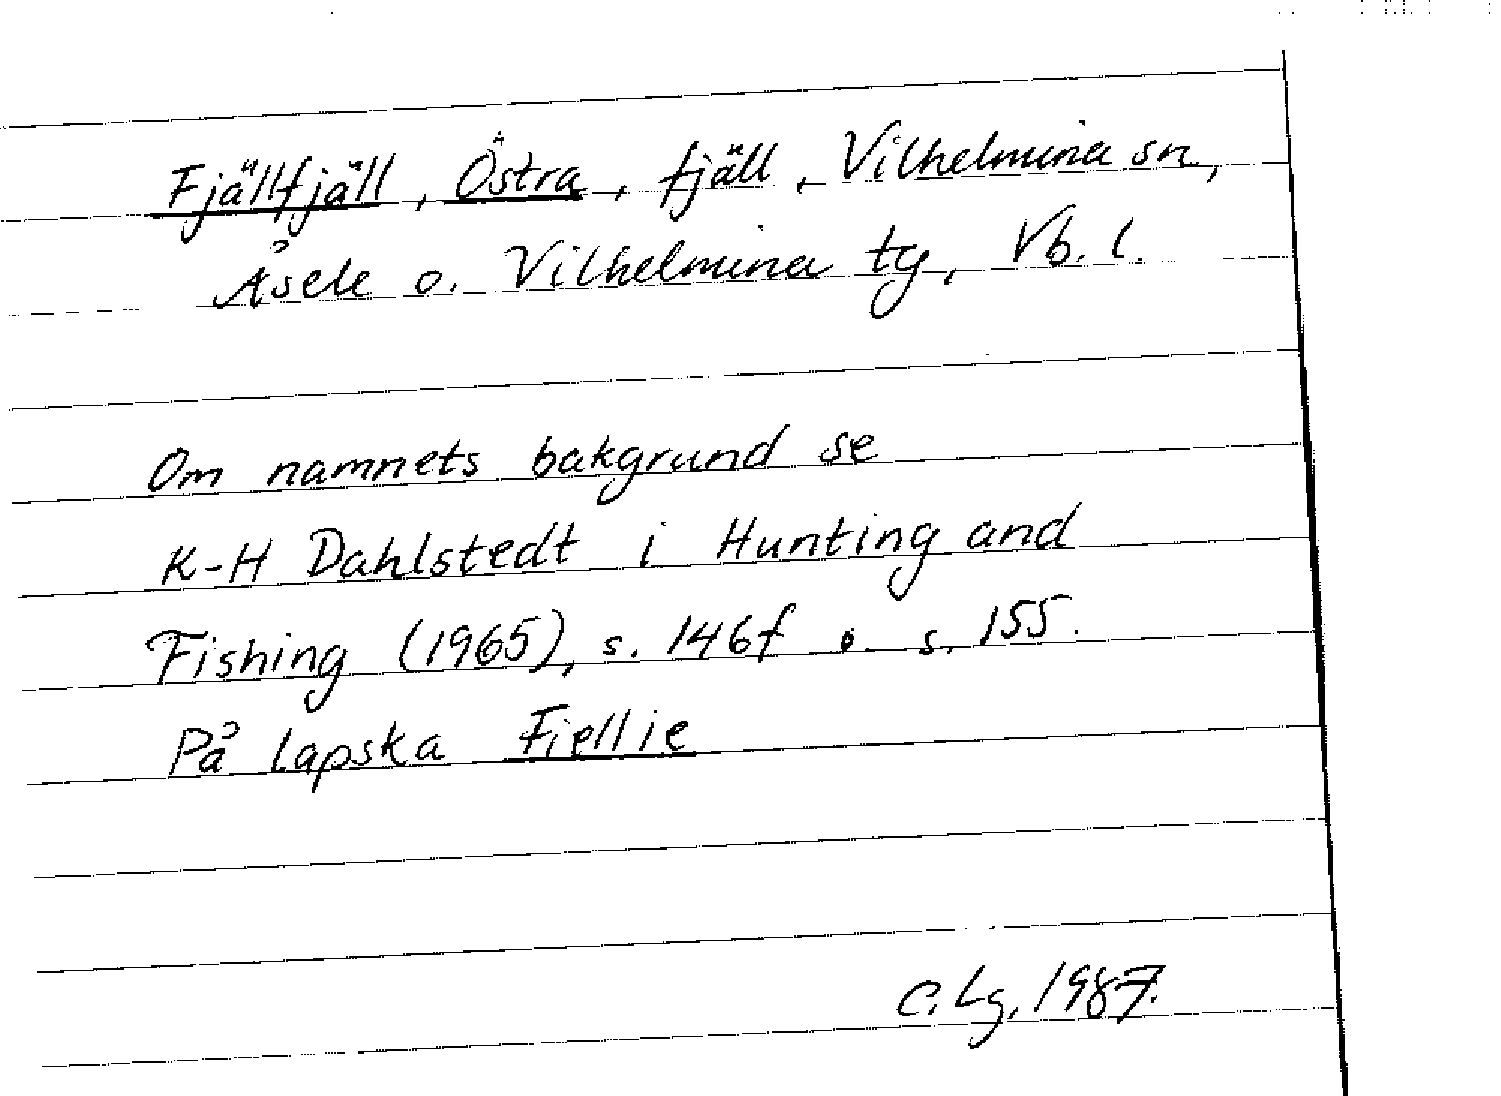 Fjällfjäll, Östra, fjäll, Vilhelmina sn,
Åsele o. Vilhelmina tg, Vb. l.
Om namnets bakgrund se
K-H Dahlstedt i Hunting and
Fishing (1965), s. 146f o s. 155.
På lapska Fiellie
C. Lg, 1987.